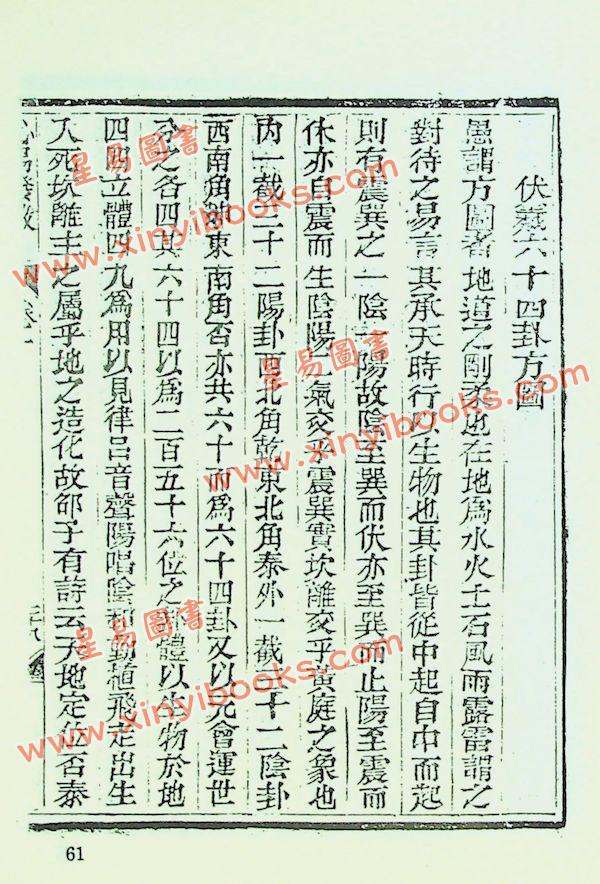 伏羲六十四卦方圖
愚謂方圖者地道之剛柔也在地為水火土石風雨露雷謂之
對待之易言其承天時行以生物也其卦皆從中起自中而起
則有震巽之一陰一陽故陰至巽而伏亦至巽而止陽至震而
休亦自震而生陰陽二氣交乎震巽實坎離交乎黃庭之象也
內一截三十二陽卦西北角乾東北角泰外一截三十二陰卦
西南角坤東南角否亦共六十而為六十四卦又以元會運世
之各四其六十四以為二百五十六位之體以生物於地
四陽立體四九為用以見律呂音聲陽唱陰和動植飛走出生
入死坎離主之屬乎地之造化故邵子有詩云天地定位否泰
卷一
61
星易圖書
www.xinyibooks.com
星易圖書
www.xinyibooks.com
星易圖書
www.xinyibooks.com
星易圖書
www.xinyibooks.com